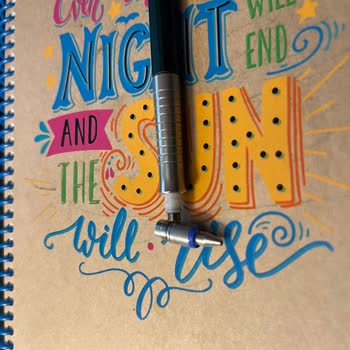 Even
WILL
NIGHT
END
AND
THE
SUN
will rise